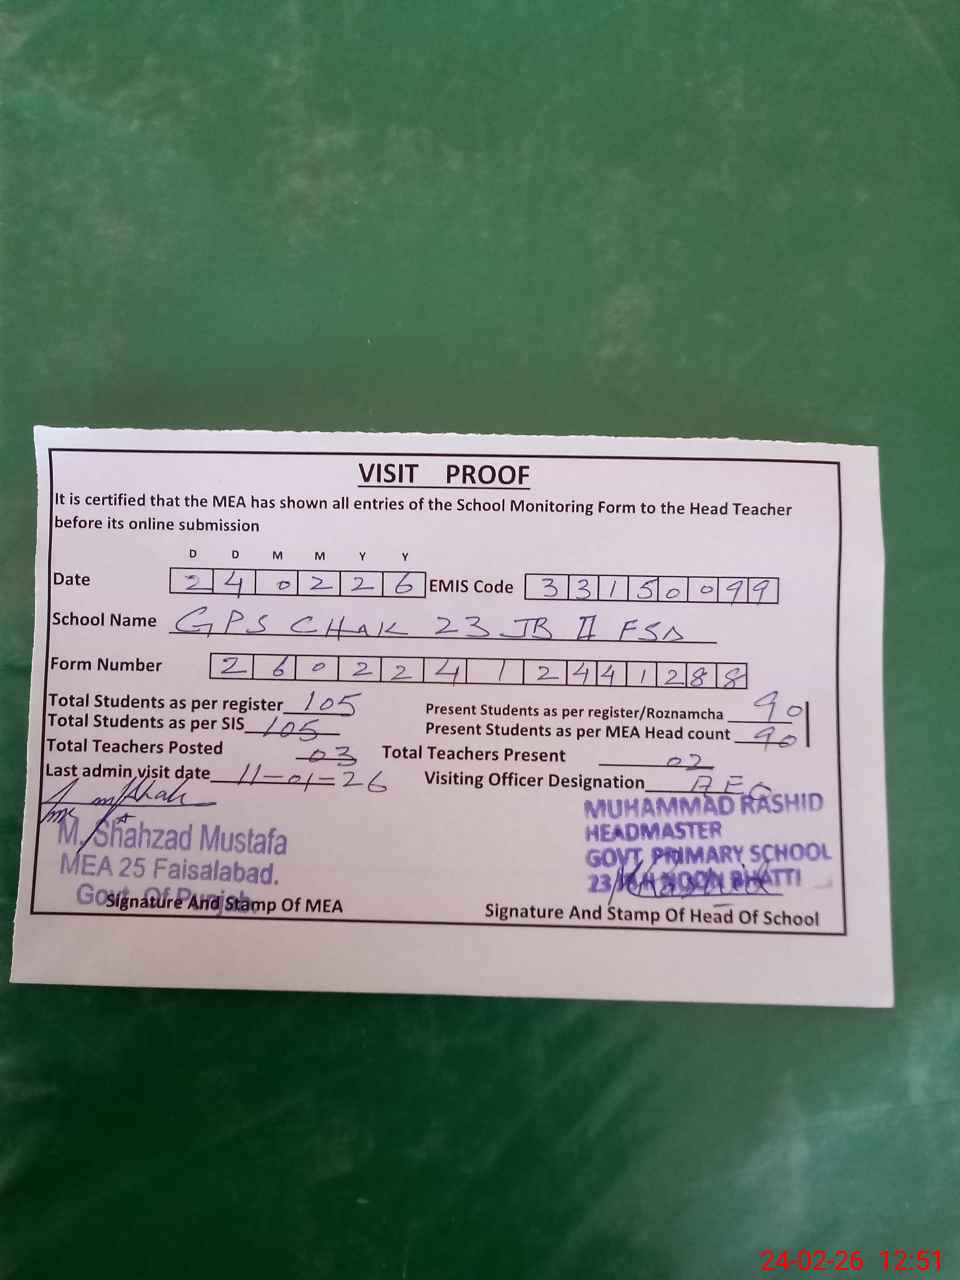 VISIT PROOF
It is certified that the MEA has shown all entries of the School Monitoring Form to the Head Teacher
before its online submission
D D M M Y Y
Date 2 4 0 2 2 6 EMIS Code 3 3 1 5 0 0 9 9
School Name GPS CHAK 23 JB II FSD
Form Number 2 6 0 2 2 4 1 2 4 4 1 2 8 8
Total Students as per register 105 Present Students as per register/Roznamcha 90
Total Students as per SIS 105 Present Students as per MEA Head count 90
Total Teachers Posted 03 Total Teachers Present 02
Last admin visit date 11-01-26 Visiting Officer Designation AEO
M. Shahzad Mustafa
MEA 25 Faisalabad.
Govt. Of Punjab.
Signature And Stamp Of MEA
MUHAMMAD RASHID
HEADMASTER
GOVT. PRIMARY SCHOOL
23 NOON BHATTI
Signature And Stamp Of Head Of School
24-02-26 12:51